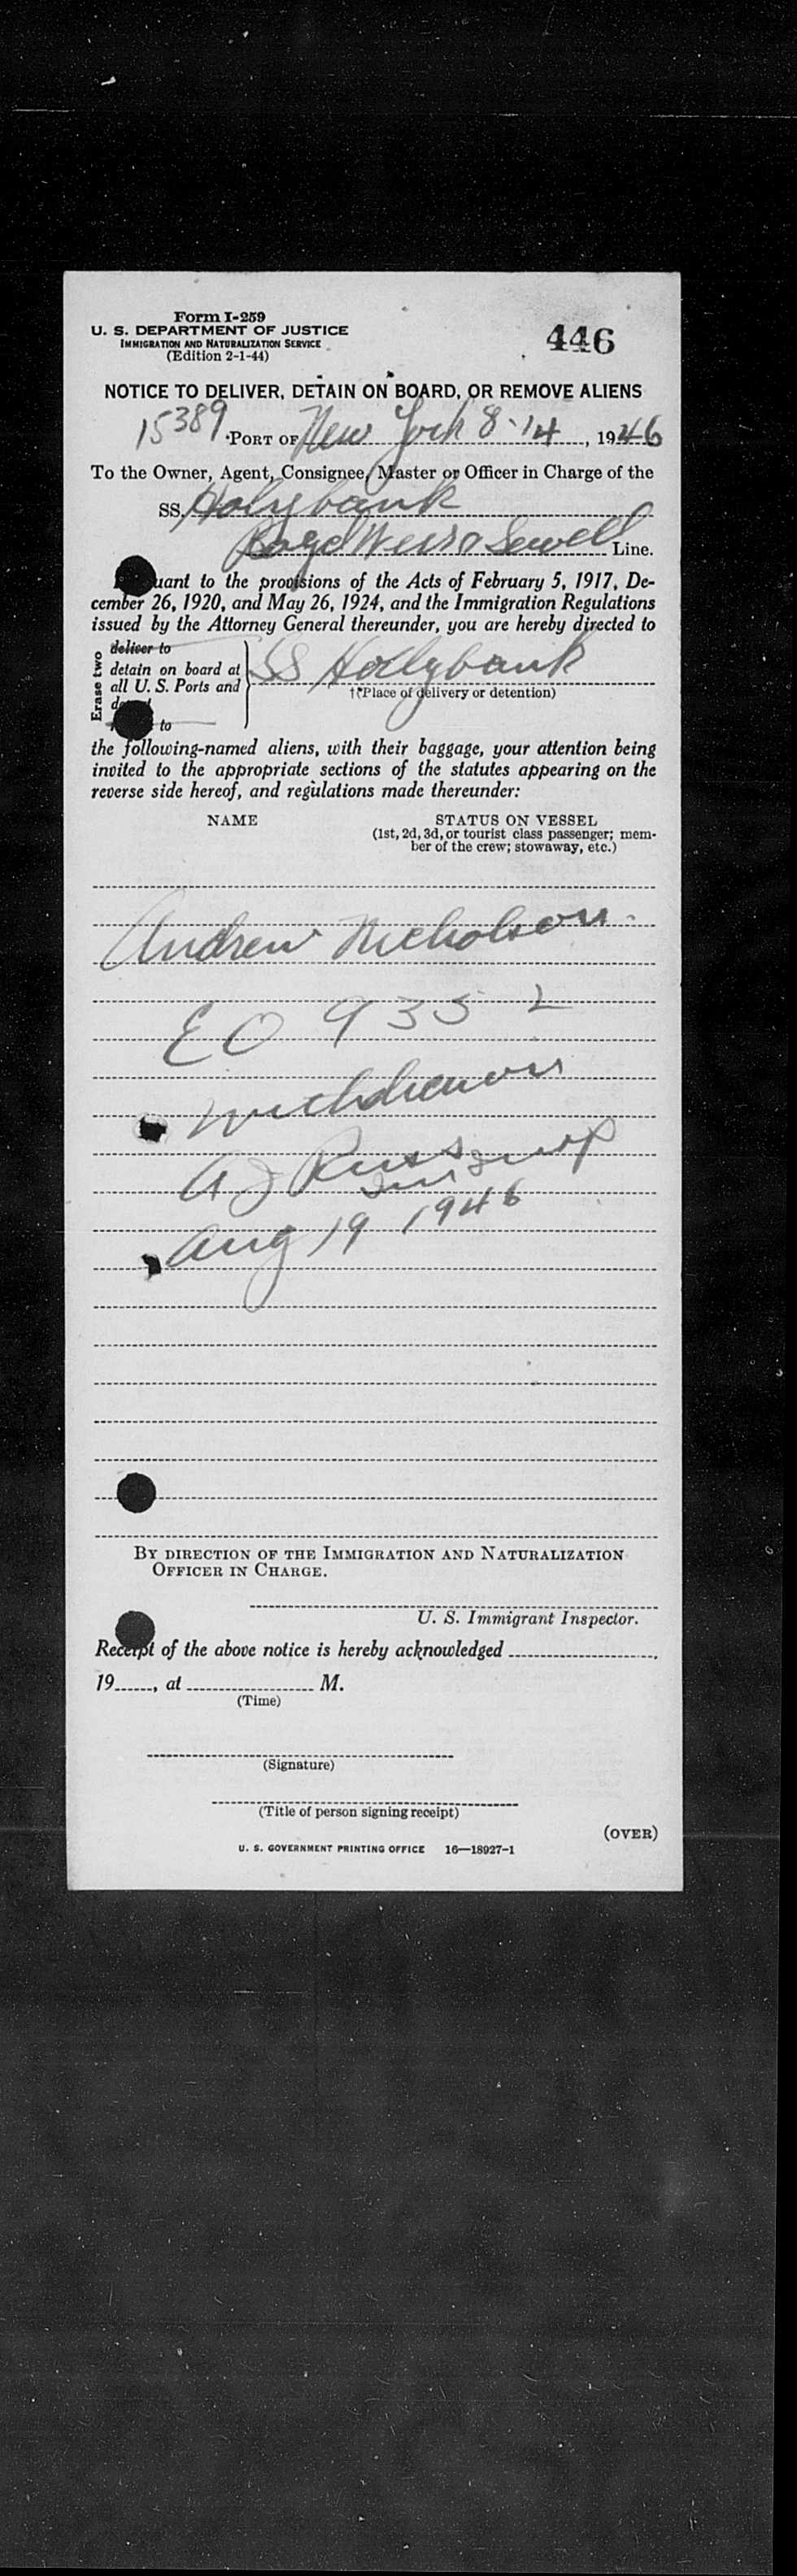 Form I-259
U. S. DEPARTMENT OF JUSTICE
IMMIGRATION AND NATURALIZATION SERVICE
(Edition 2-1-44)
446
NOTICE TO DELIVER, DETAIN ON BOARD, OR REMOVE ALIENS
15389 PORT OF New York 8-14, 1946
To the Owner, Agent, Consignee, Master or Officer in Charge of the
SS. Holybank
Boyd Weir & Sewell Line.
uant to the provisions of the Acts of February 5, 1917, De-
cember 26, 1920, and May 26, 1924, and the Immigration Regulations
issued by the Attorney General thereunder, you are hereby directed to
Erase two
deliver to
detain on board at
all U. S. Ports and
SS Hollybank
(Place of delivery or detention)
to
the following-named aliens, with their baggage, your attention being
invited to the appropriate sections of the statutes appearing on the
reverse side hereof, and regulations made thereunder:
NAME STATUS ON VESSEL
(1st, 2d, 3d, or tourist class passenger; mem-
ber of the crew; stowaway, etc.)
Andrew Nicholson
EO 9352
Withdrawn
A J Russ
Aug 19 1946
BY DIRECTION OF THE IMMIGRATION AND NATURALIZATION
OFFICER IN CHARGE.
U. S. Immigrant Inspector.
Receipt of the above notice is hereby acknowledged
19, at M.
(Time)
(Signature)
(Title of person signing receipt)
(OVER)
U. S. GOVERNMENT PRINTING OFFICE 16—18927-1